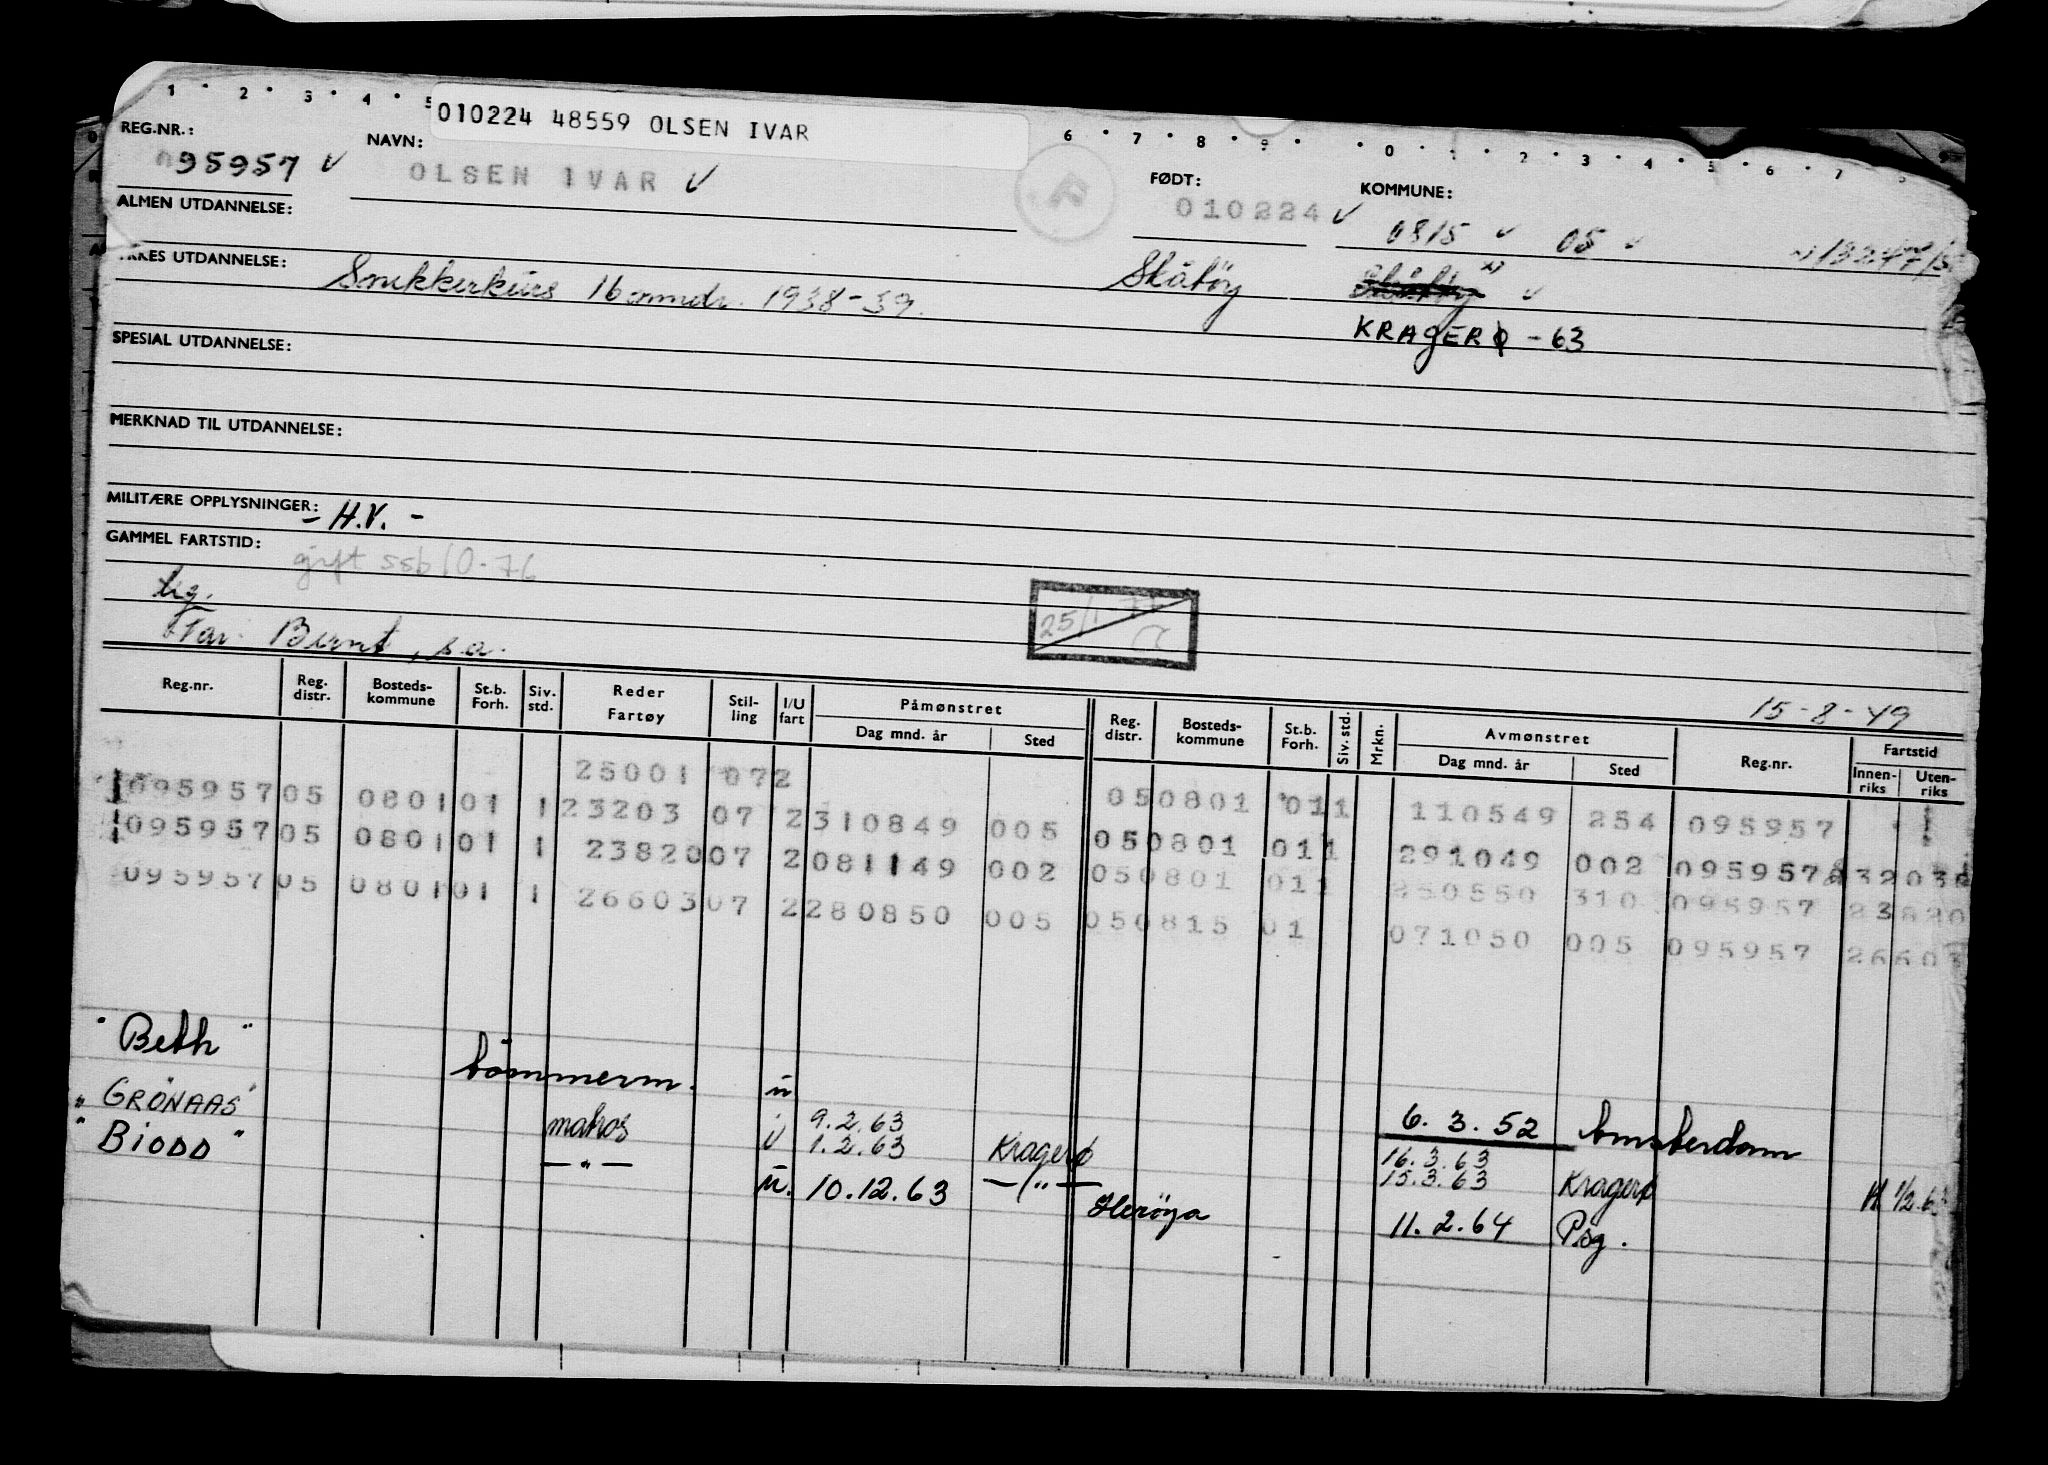 1 2 3 4 5 6 7 8 9 0 1 2 3 4 5 6 7
010224 48559 OLSEN IVAR
REG.NR.: NAVN: FØDT: KOMMUNE:
095957 v OLSEN IVAR v 010224 v 0815 v 05 v
ALMEN UTDANNELSE:
YRKES UTDANNELSE: Snikkerkurs 16 mndr. 1938-39. Skåtøy Skåtøy x) v
KRAGERØ - 63
SPESIAL UTDANNELSE:
MERKNAD TIL UTDANNELSE:
MILITÆRE OPPLYSNINGER: - H.V. -
GAMMEL FARTSTID: gift ssb 10-76
ug.
Far. Bernt, s.a.
15-8-49
Reg.nr. Reg. distr. Bosteds- kommune St.b. Forh. Siv. std. Reder Fartøy Stil- ling I/U fart Påmønstret Dag mnd. år Sted Reg. distr. Bosteds- kommune St.b. Forh. Siv. std. Mrkn. Avmønstret Dag mnd. år Sted Reg.nr. Fartstid Innen- riks Uten- riks
25001 072 050801 011 110549 254 095957
095957 05 080101 1 23203 07 2 310849 005 050801 011 291049 002 095957
095957 05 080101 1 23820 07 2 081149 002 050801 011 250550 310 095957 23820
095957 05 080101 1 26603 07 2 280850 005 050815 01 071050 005 095957 26603
"Beth" tömmerm. u 6. 3. 52 Amsterdam
"GRÖNAAS" matros i 9.2.63 1.2.63 Kragerø 16.3.63 15.3.63 Kragerø 1/2.63
"BIODD" - " - u. 10.12.63 - " - Herøya 11. 2. 64 Psg.